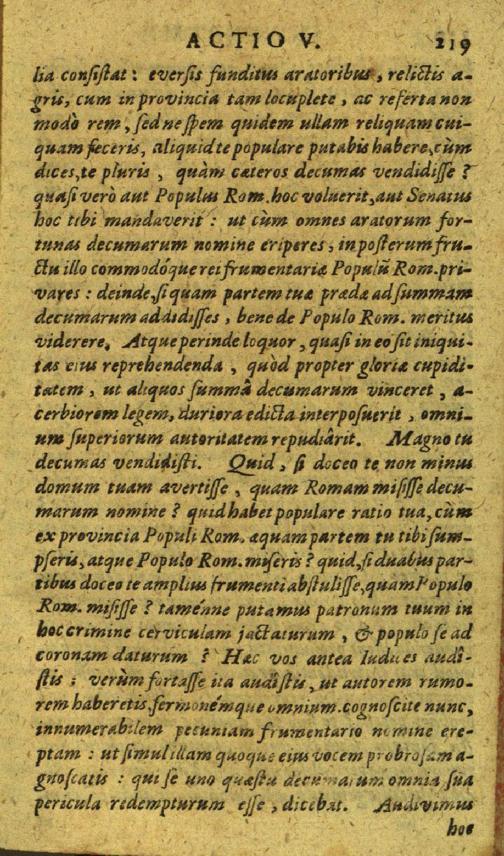 ACTIO V. 219
lia consistat: eversis funditus aratoribus, relictis a-
gris, cum in provincia tam locuplete, ac referta non
modò rem, sed ne spem quidem ullam reliquam cui-
quam feceris, aliquid te populare putabis habere, cùm
dices, te pluris, quàm cæteros decumas vendidisse?
quasi verò aut Populus Rom. hoc voluerit, aut Senatus
hoc tibi mandaverit: ut cùm omnes aratorum for-
tunas decumarum nomine eriperes, in posterum fru-
ctu illo commodóque rei frumentariæ Populũ Rom. pri-
vares: deinde, si quam partem tuæ prædæ ad summam
decumarum addidisses, bene de Populo Rom. meritus
viderere. Atque perinde loquor, quasi in eo sit iniqui-
tas eius reprehendenda, quòd propter gloriæ cupidi-
tatem, ut aliquos summâ decumarum vinceret, a-
cerbiorem legem, duriora edicta interposuerit, omni-
um superiorum autoritatem repudiârit. Magno tu
decumas vendidisti. Quid, si doceo te non minus
domum tuam avertisse, quam Romam misisse decu-
marum nomine? quid habet populare ratio tua, cùm
ex provincia Populi Rom. æquam partem tu tibi sum-
pseris, atque Populo Rom. miseris? quid, si duabus par-
tibus doceo te amplius frumenti abstulisse, quàm Populo
Rom. misisse? taméne putamus patronum tuum in
hoc crimine cerviculam jactaturum, & populo se ad
coronam daturum? Hæc vos antea Iudices audî-
stis: verùm fortasse ita audîstis, ut autorem rumo-
rem haberetis, sermonémque omnium. cognoscite nunc,
innumerabilem pecuniam frumentario nomine ere-
ptam: ut simul illam quoque ejus vocem probrosam a-
gnoscatis: qui se uno quæstu decumarum omnia sua
pericula redempturum esse, dicebat. Audivimus
hoc